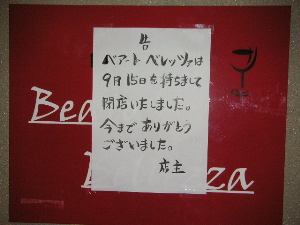 告
ベアート ベレッツァは
9月15日を持ちまして
閉店いたしました。
今まで ありがとう
ございました。
店主
Bea
za